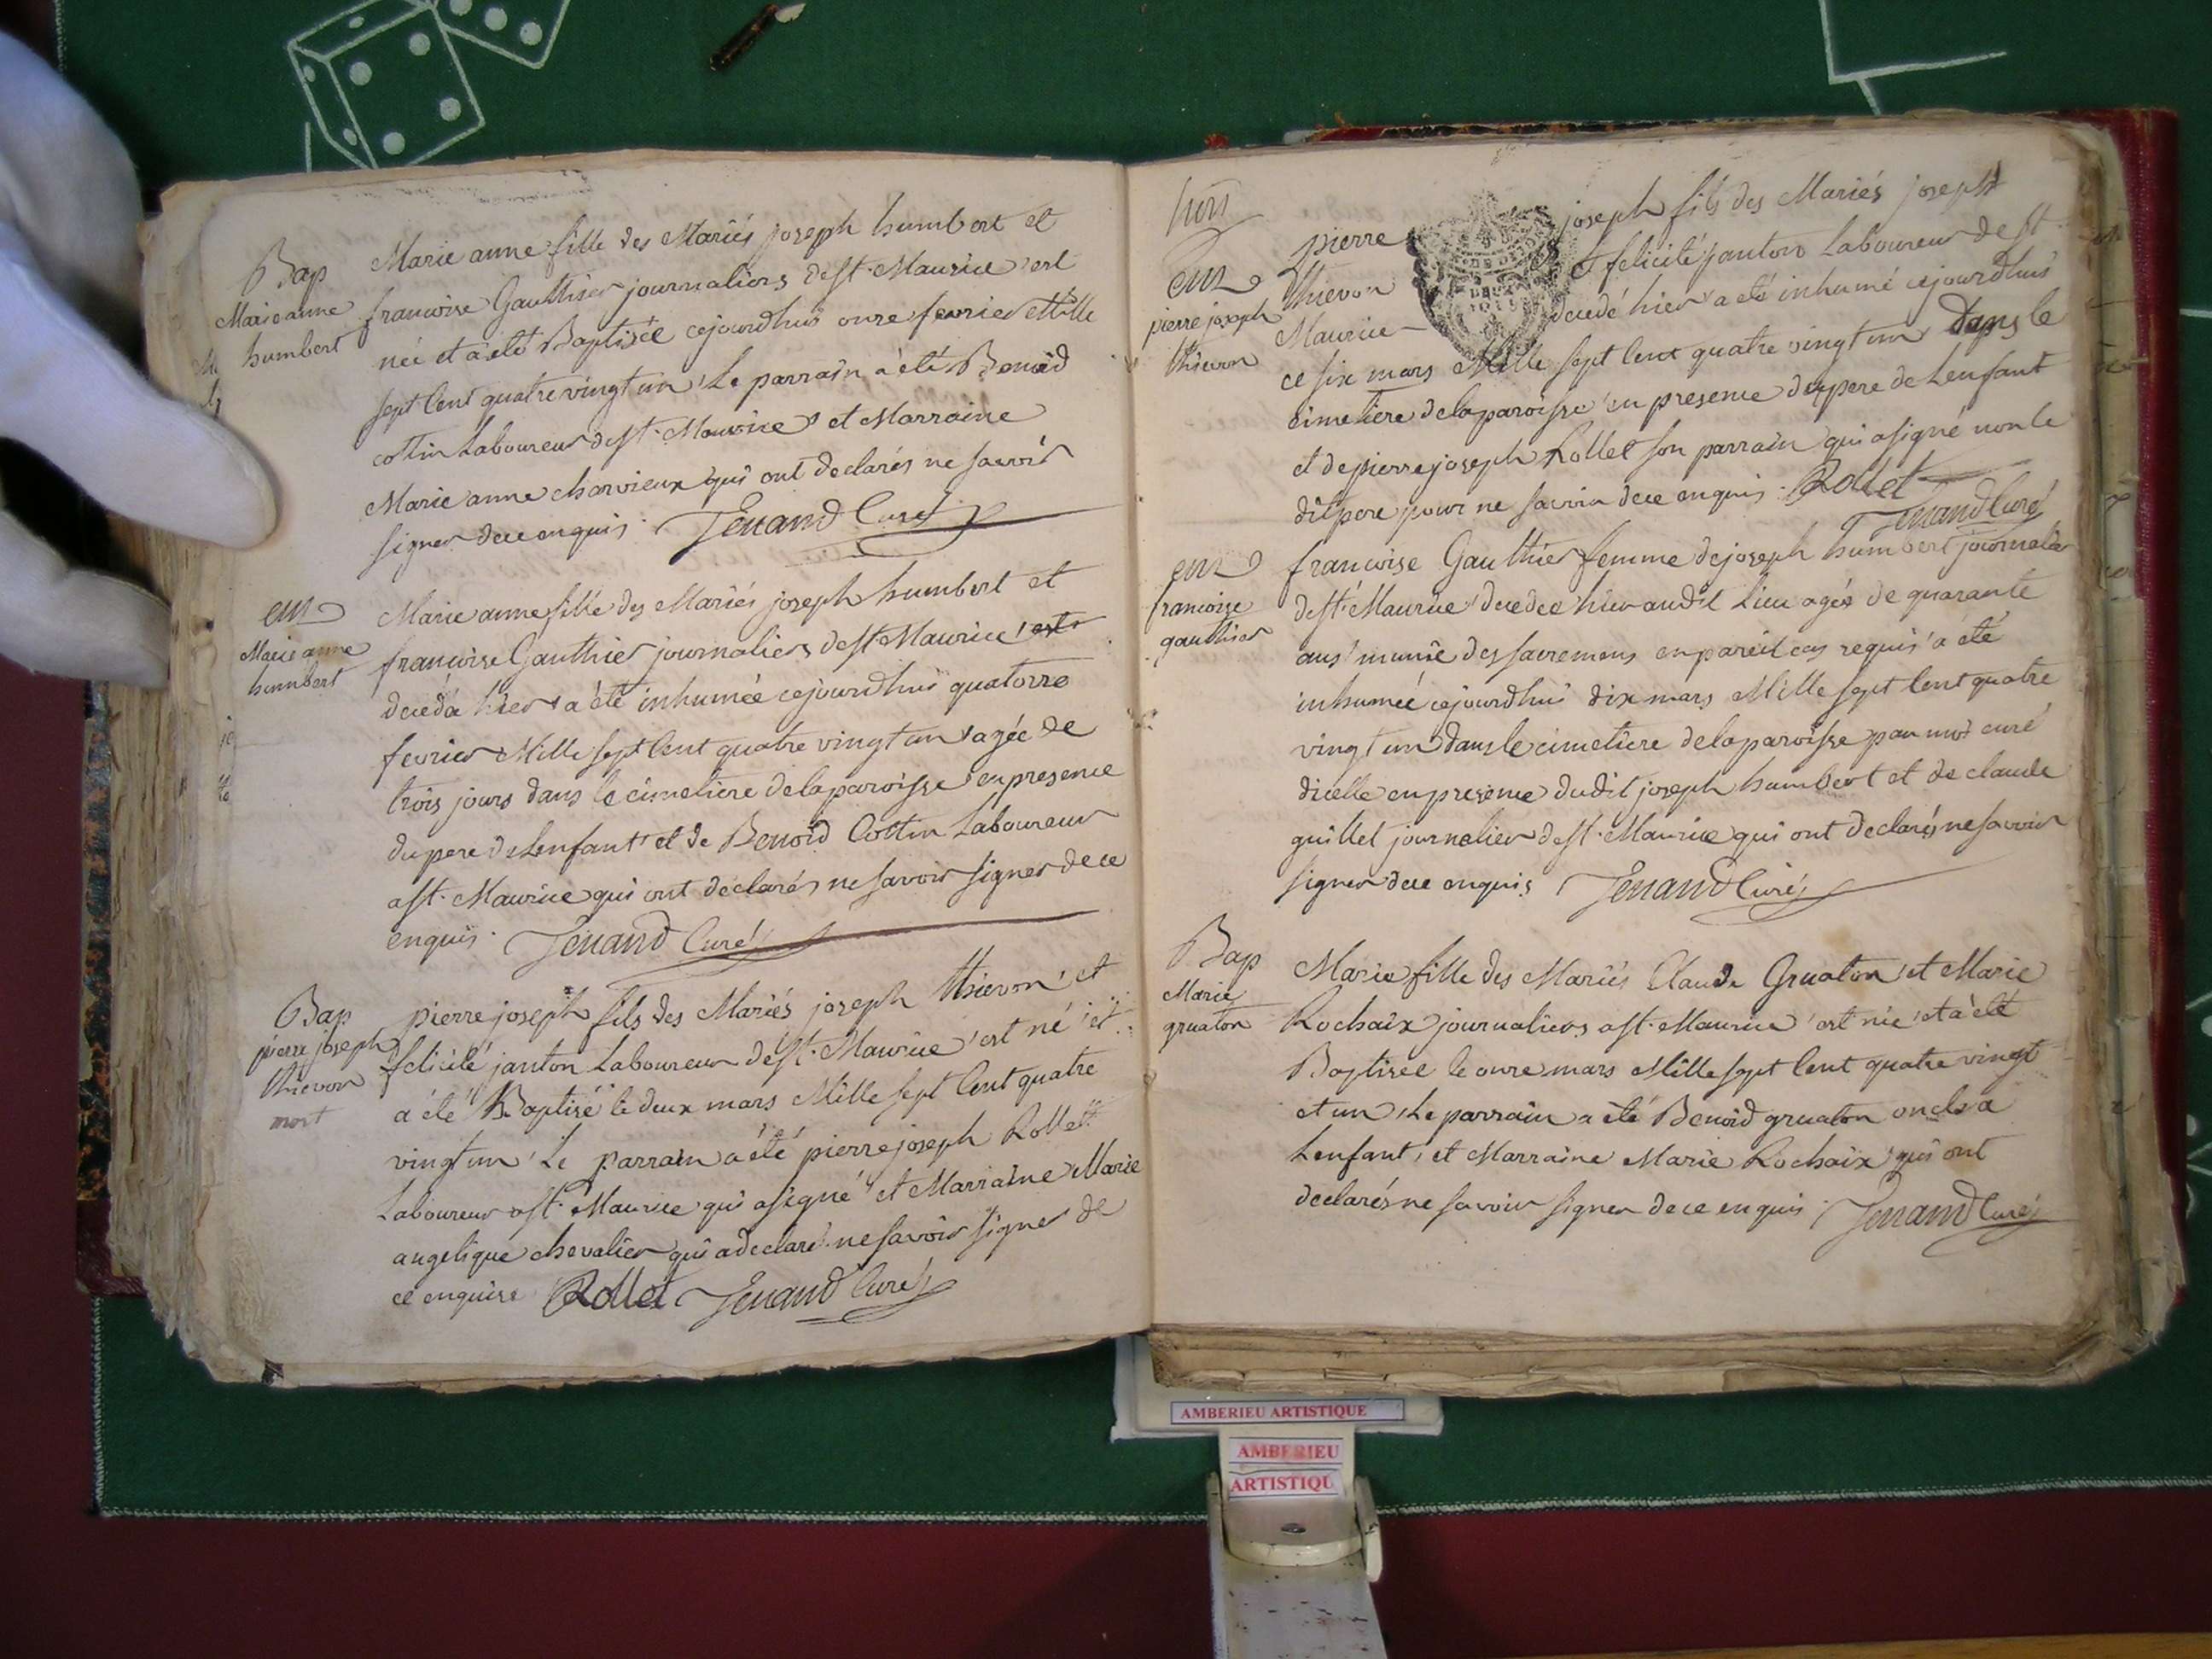 Bap
Marie anne
humbert
Marie anne fille des Mariés joseph humbert et
francoise Gauthier journaliers de st. Maurice est
née et a été Baptisée cejourdhui onze fevrier Mille
sept cent quatre vingt un, Le parrain a été Benoid
cottin Laboureur de st. Maurice et Marraine
Marie anne charvieux qui ont declarés ne savoir
signer de ce enquis. Jenand Curé
en
Marie anne
humbert
Marie anne fille des Mariés joseph humbert et
francoise Gauthier journaliers de st. Maurice est
decedá hier a été inhumée cejourdhui quatorze
fevrier Mille sept cent quatre vingt un agée de
trois jours dans le cimetiere de la paroisse en presence
du pere de Lenfant et de Benoid Cottin Laboureur
a st. Maurice qui ont declarés ne savoir signer de ce
enquis. Jenand Curé
Bap
pierre joseph
thievon
mort
pierre joseph fils des Mariés joseph thievon et
felicité janton Laboureur de st. Maurice est né et
a été Baptisé le deux mars Mille sept cent quatre
vingt un, Le parrain a été pierre joseph Rollet
Laboureur a st. Maurice qui a signé et Marraine Marie
angelique chevalier qui a declaré ne savoir signer de
ce enquise Rollet Jenand Curé
en
pierre joseph
thievon
pierre joseph fils des Mariés joseph
thievon et felicité janton Laboureur de st.
Maurice decedé hier a été inhumé cejourdhui
ce six mars Mille sept cent quatre vingt un Dans le
cimetiere de la paroisse en presence du pere de Lenfant
et de pierre joseph Rollet son parrain qui a signé non le
dit pere pour ne savoir de ce enquis. Rollet
Jenand Curé
en
francoise
gauthier
francoise Gauthier femme de joseph humbert journalier
de st. Maurice decedée hier audit Lieu agée de quarante
ans munie des sacremens en pareil cas requis a été
inhumée cejourdhui dix mars Mille sept cent quatre
vingt un dans le cimetiere de la paroisse par moi curé
dicelle en presence dudit joseph humbert et de claude
guillet journalier de st. Maurice qui ont declarés ne savoir
signer de ce enquis Jenand Curé
Bap
Marie
gruaton
Marie fille des Mariés Claude Gruaton et Marie
Rochaix journaliers a st. Maurice est née et a été
Baptisée le onze mars Mille sept cent quatre vingt
et un, Le parrain a été Benoid gruaton oncle a
Lenfant, et Marraine Marie Rochaix qui ont
declarés ne savoir signer de ce enquis. Jenand Curé
AMBERIEU ARTISTIQUE
AMBERIEU
ARTISTIQU